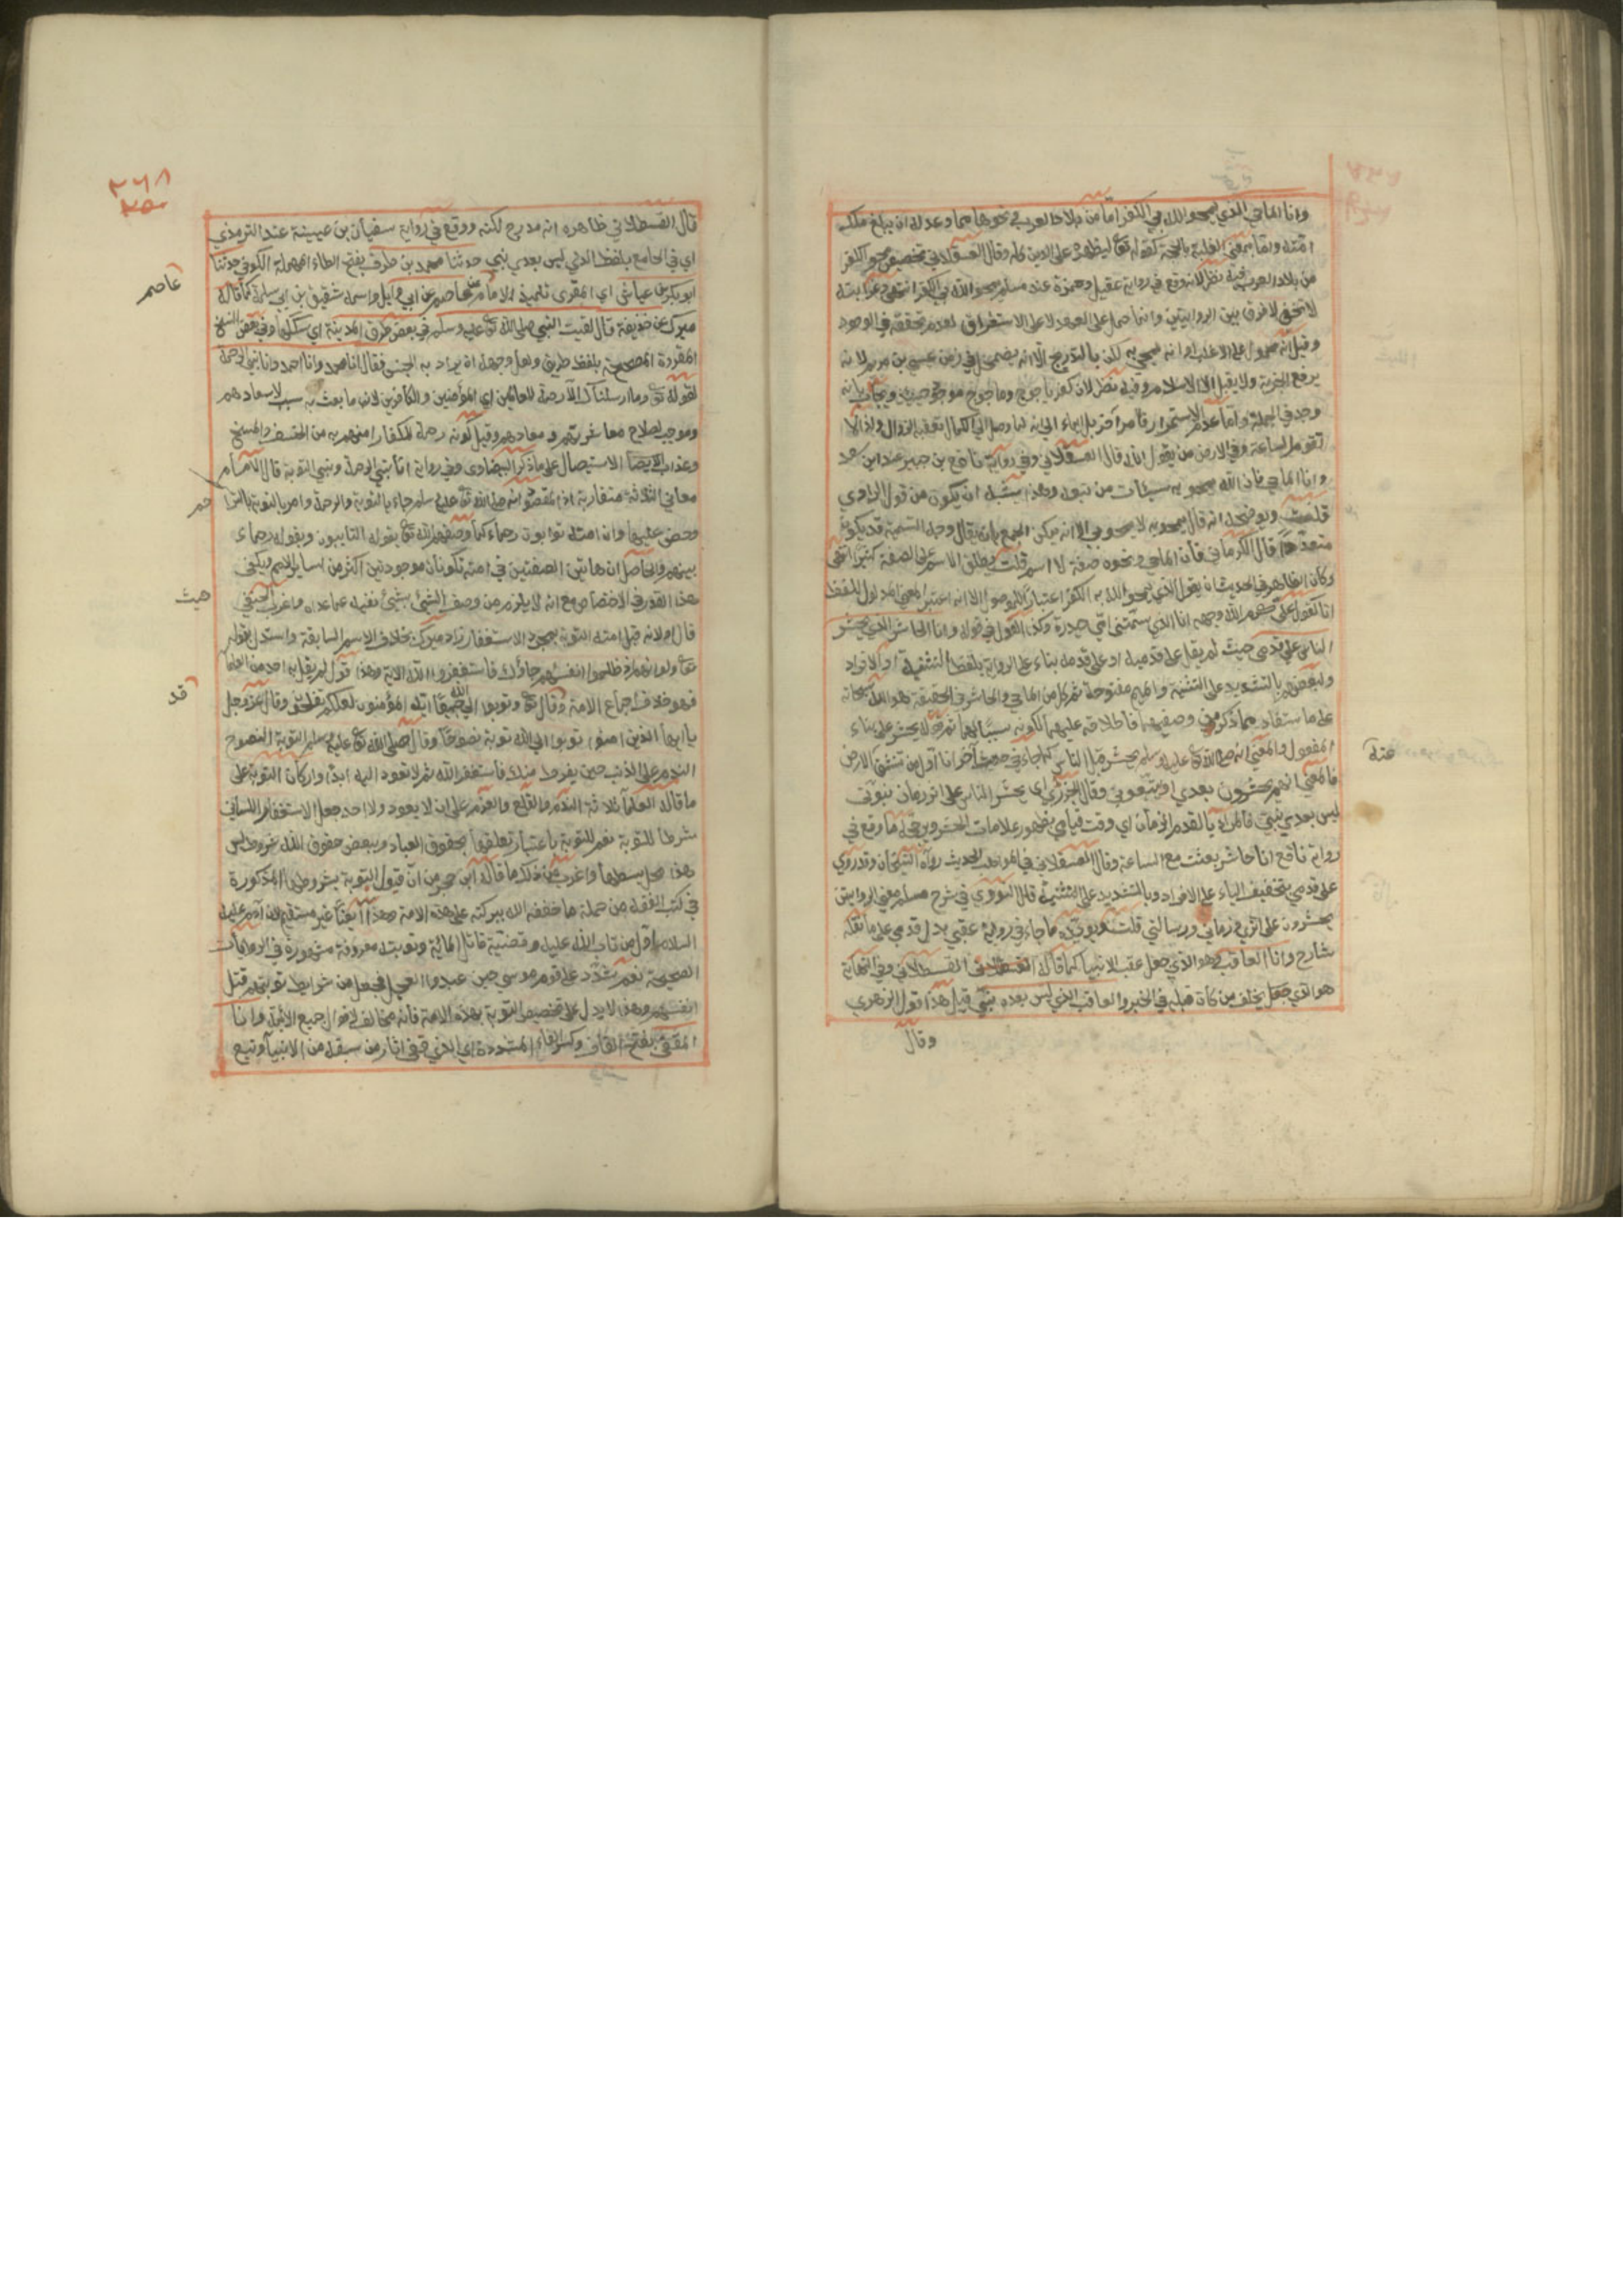 وانا الماحي الذي يمحو الله بي الكفر اما من بلاد العرب ونحوها مما وعد له ان يبلغ ملك
امته واما بمعنى الغلبة بالحجة كقوله تع ليظهره على الدين كله وقال العسقلاني تخصيص محو الكفر
من بلاد العرب فيه نظر لانه وقع في رواية عقيل ومعمر عند مسلم يمحو الله بي الكفر انتهى وغرابته
لا تخفى لا فرق بين الروايتين وانما حمل على العهد لا على الاستغراق لعدم تحققه في الوجود
وقيل انه محمول على الاغلب او انه يمحي به لكن بالتدريج الا انه يضمحل في زمن عيسى بن مريم لانه
يرفع الجزية ولا يقبل الا الاسلام وفيه نظر لان كفر ياجوج وماجوج موجود حينئذ ويجاب بانه
وجد في الجملة واما عدم الاستمرار فامر آخر بل ايماء الى انه لما وصل الى الكمال تعقبه الزوال ولذا لا
تقوم الساعة وفي الارض من يقول الله قال العسقلاني وفي رواية نافع بن جبير عند ابن سعد
وانا الماحي فان الله يمحو به سيئات من تبعه وهذا يشبه ان يكون من قول الراوي
قلت ويوضحه انه قال يمحو به لا يمحو بي الا انه يمكن الجمع بان يقال وجه التسمية قد يكون
متعددا قال الكرماني فان الماحي ونحوه صفة لا اسم قلت يطلق الاسم على الصفة كثيرا انتهى
وكان الظاهر في الحديث ان يقول الذي يمحو الله به الكفر اعتبارا للموصول الا انه اعتبر المعنى المدلول للفظ
انا كقول علي كرم الله وجهه انا الذي سمتني امي حيدرة وكذا القول في قوله وانا الحاشر الذي يحشر
الناس على قدمي حيث لم يقل على قدميه او على قدمه بناء على الرواية بلفظ التثنية او الافراد
ولبعضهم بالتشديد على التثنية والميم مفتوحة ثم كل من الماحي والحاشر في الحقيقة هو الله سبحانه
على ما يستفاد مما ذكر من وصفيهما فاطلاقه عليهما لكونه سببا لهما ثم قوله يحشر على بناء
المفعول والمعنى انه صلى الله تع عليه وسلم يحشر قبل الناس كما جاء في حديث آخر انا اول من تنشق الارض
عنه
فالمعنى انهم يحشرون بعدي او يتبعوني وقال الجزري اي يحشر الناس على اثر زمان نبوتي
ليس بعدي نبي فالمراد بالقدم الزمان اي وقت قيامي بظهور علامات الحشر ويرجحه ما وقع في
رواية نافع انا حاشر بعثت مع الساعة وقال العسقلاني في المواهب الحديث رواه الشيخان وقد روي
على قدمي بتخفيف الياء على الافراد وبالتشديد على التثنية قال النووي في شرح مسلم معنى الروايتين
يحشرون على اثري وزماني ورسالتي قلت ويؤيده ما جاء في رواية عقبي بدل قدمي على ما نقله
شارح وانا العاقب وهو الذي جعل عقب الانبيا كما قاله القسطلاني وفي النهاية
هو الذي جعل يخلف من كان قبله في الخير والعاقب الذي ليس بعده نبي قيل هذا قول الزهري
وقال
٢٦٨
٢٥٠
قال القسطلاني ظاهره انه مدرج لكنه وقع في رواية سفيان بن عيينة عند الترمذي
اي في الجامع بلفظ الذي ليس بعدي نبي حدثنا محمد بن طريف بفتح الطاء المهملة الكوفي حدثنا
ابو بكر بن عياش اي المقرى تلميذ الامام عاصم عن عاصم عن ابي وايل واسمه شقيق بن ابي سلمة كما قاله
عاصم
ميرك عن حذيفة قال لقيت النبي صلى الله تع عليه وسلم في بعض طرق المدينة اي سككها وفي بعض النسخ
المقروة المصححة بلفظ طريق ولعل وجهه انه يراد به الجنس فقال انا محمد وانا احمد وانا نبي الرحمة
لقوله تع وما ارسلناك الا رحمة للعالمين اي المؤمنين والكافرين لان ما بعث به سبب لاسعادهم
وموجب لصلاح معاشهم ومعادهم وقيل كونه رحمة للكفار امنهم به من الخسف والمسخ
وعذاب الاستيصال على ما ذكر البيضاوي وفي رواية انا نبي الرحمة ونبي التوبة قال الامام
معاني الثلاثة متقاربة اذ المقصود انه صلى الله تع عليه وسلم جاء بالتوبة والرحمة وامر بالتوبة بالتراحم
وحض عليهما وان امته توابون رحماء كما وصفهم الله تع بقوله التايبون وبقوله رحماء
بينهم والحاصل ان هاتين الصفتين في امته تكونان موجودتين اكثر من ساير الامم ويكفي
هذا القدر في الاختصاص مع انه لا يلزم من وصف الشيئ بشيئ نفيه عما عداه واغرب الحنفي
حيث
قال اولانه قبل امته التوبة بمجرد الاستغفار زاد ميرك بخلاف الامم السابقة واستدل بقوله
تع ولو انهم اذ ظلموا انفسهم جاؤك فاستغفروا الله الاية وهذا قول لم يقل به احد من العلما
فهو خلاف اجماع الامة وقد قال تع وتوبوا الى الله جميعا ايه المؤمنون لعلكم تفلحون وقال عز وجل
قد
يا ايها الذين امنوا توبوا الى الله توبة نصوحا وقال صلى الله تع عليه وسلم التوبة النصوح
الندم على الذنب حين يفرط منك فاستغفر الله ثم لا تعود اليه ابدا واركان التوبة على
ما قاله العلماء ثلاثة الندم والقلع والعزم على ان لا يعود ولا احد جعل الاستغفار اللساني
شرطا للتوبة نعم للتوبة باعتبار تعلقها بحقوق العباد وببعض حقوق الله شروط ليس
هذا محل بسطها واغرب من ذلك ما قاله ابن حجر من ان قبول التوبة بشروطها المذكورة
في كتب الفقه من جملة ما خففه الله ببركته على هذه الامة وهذا ايضا غير مستقيم لان آدم عليه
السلام اول من تاب الله عليه وقضيته قاتل المائة وتوبته معروفة مشهورة في الروايات
الصحيحة نعم شدد على قوم موسى حين عبدوا العجل فجعل من شرايط توبتهم قتل
انفسهم وهذا لا يدل على تخصيص التوبة بهذه الامة فانه مخالف لاقوال جميع الائمة وانا
المقفي بفتح القاف وكسر الفاء المشددة اي الذي قفى اثار من سبقه من الانبيا وتبع